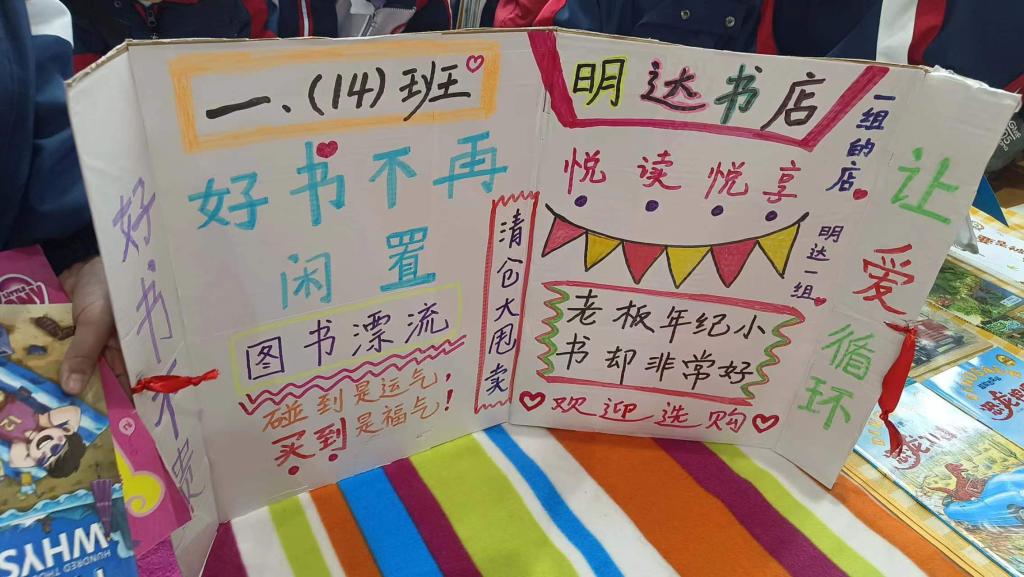 一、(14)班
好书不再
闲置
图书漂流
碰到是运气，
买到是福气！
好书不
清仓大甩卖
明达书店
悦读悦享
老板年纪小
书却非常好
欢迎选购
一组的店
明达一组
让爱循环
WHYS
HUNDRED THOU